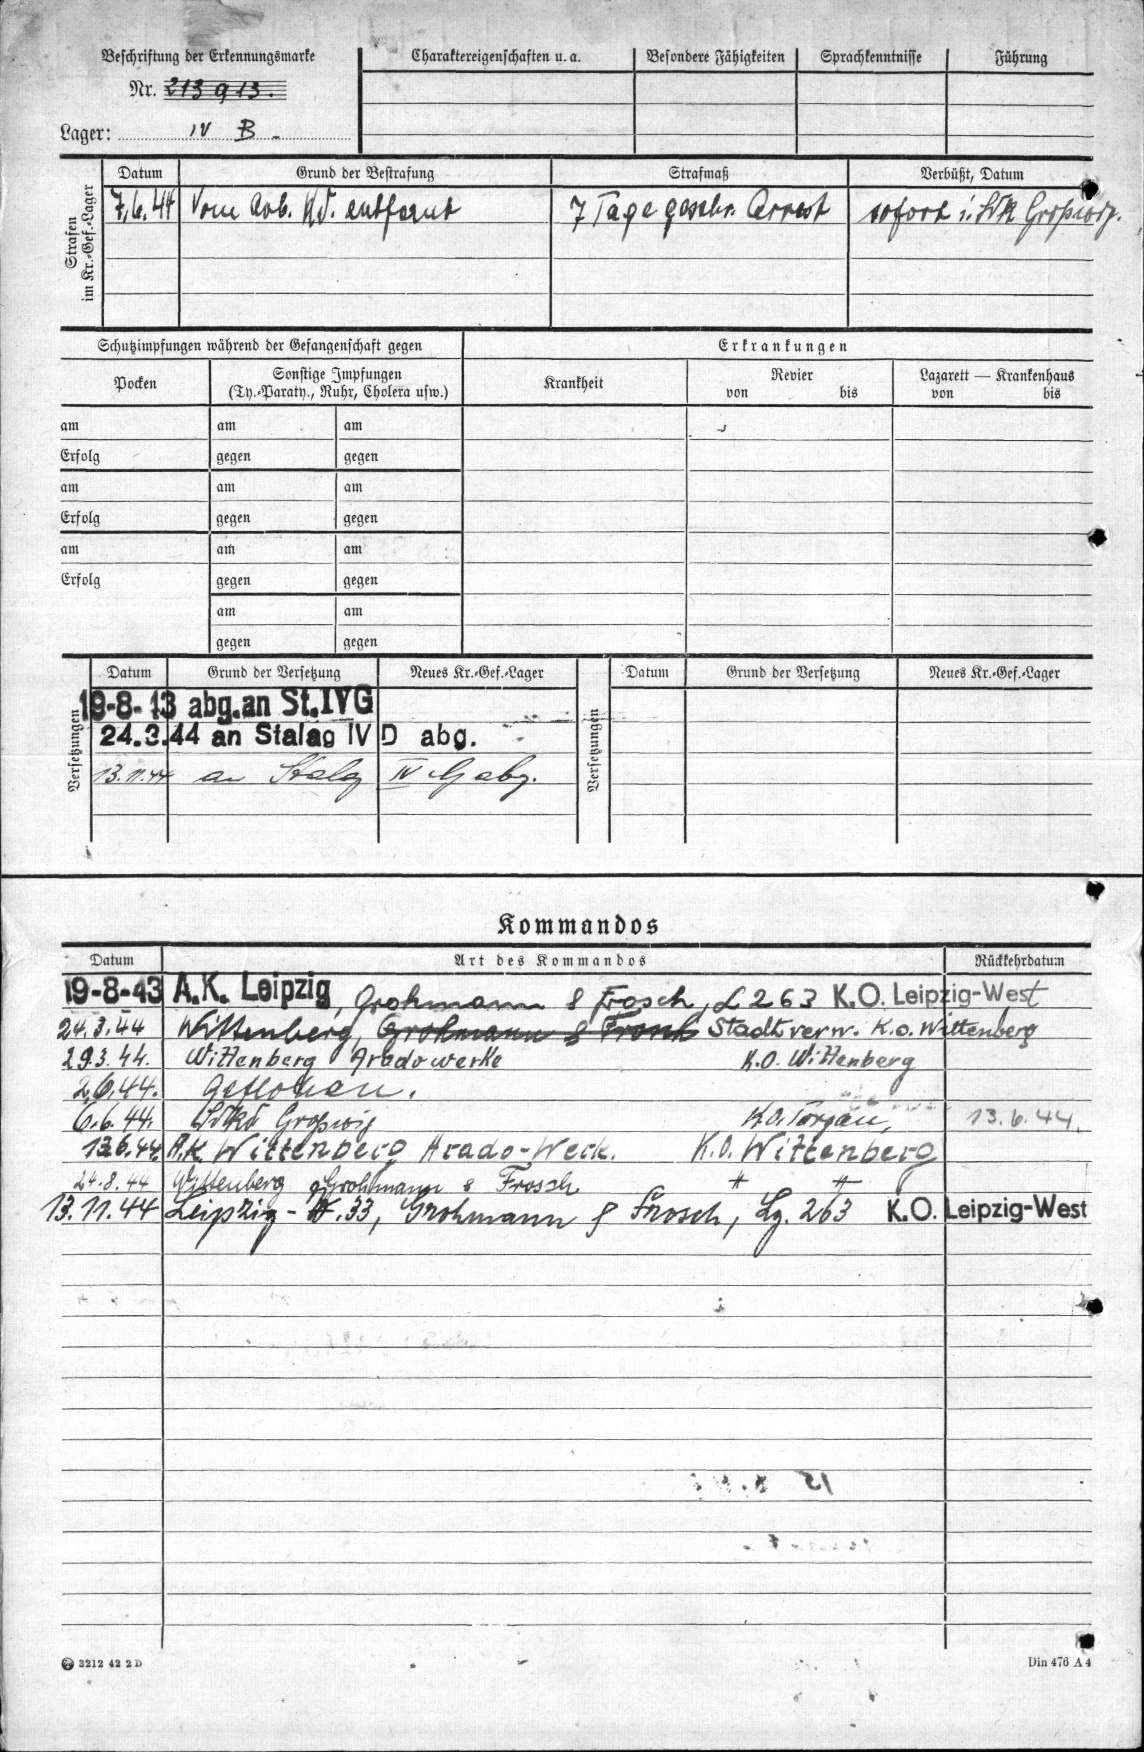 Beschriftung der Erkennungsmarke
Nr. 213 913.
Lager: IV B.
Charaktereigenschaften u. a. Besondere Fähigkeiten Sprachkenntnisse Führung
Strafen im Kr.-Gef.-Lager
Datum Grund der Bestrafung Strafmaß Verbüßt, Datum
7.6.44 Vom Arb. Kd. entfernt 7 Tage geschr. Arrest sofort i.
Schutzimpfungen während der Gefangenschaft gegen
Erkrankungen
Pocken Sonstige Impfungen Krankheit Revier Lazarett — Krankenhaus
(Ty.-Paraty., Ruhr, Cholera usw.) von bis von bis
am am am
Erfolg gegen gegen
am am am
Erfolg gegen gegen
am am am
Erfolg gegen gegen
am am
gegen gegen
Versetzungen
Datum Grund der Versetzung Neues Kr.-Gef.-Lager
19-8-43 abg. an St. IVG
24.3.44 an Stalag IV D abg.
13.11.44 an Stalag IV G abg.
Versetzungen
Datum Grund der Versetzung Neues Kr.-Gef.-Lager
Kommandos
Datum Art des Kommandos Rückkehrdatum
19-8-43 A.K. Leipzig, Grohmann & Frosch, L 263 K.O. Leipzig-West
24.3.44 Wittenberg, Grohmann & Frosch Stadtverw. K.O. Wittenberg
29.3.44. Wittenberg Aradowerke K.O. Wittenberg
2.6.44. Geflohen.
6.6.44. K.O. Torgau, 13.6.44.
13.6.44. A.K. Wittenberg Arado-Werk. K.O. Wittenberg
24.8.44 Wittenberg Grohmann & Frosch " "
13.11.44 Leipzig-W.33, Grohmann & Frosch, Lg. 263 K.O. Leipzig-West
3212 42 2 D
Din 476 A 4